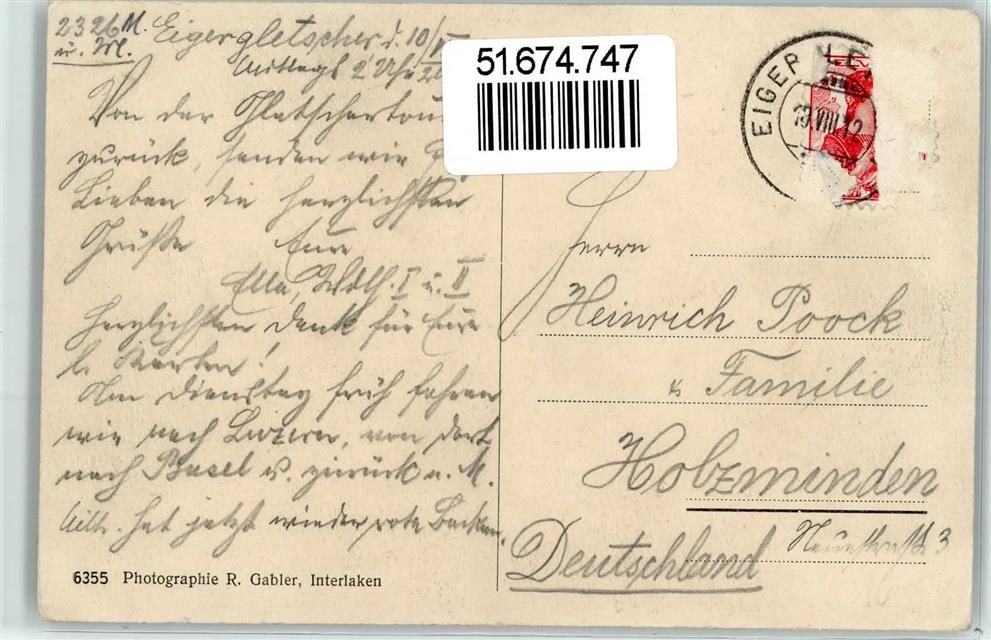 2326 M.
ü. M.
Eigergletscher d. 10/
Mittags 2 Uhr
Von der Gletschertour
zurück, senden wir
Lieben die herzlichsten
Grüße Eure
Ella, Wolf. I u. II
Herzlichsten Dank für Eure
l. Karten!
Am Dienstag früh fahren
wir nach Luzern, von dort
nach Basel u. zurück n. M.
hat jetzt wieder rote Backen.
6355 Photographie R. Gabler, Interlaken
51.674.747
EIGER
Herrn
Heinrich Poock
& Familie
Holzminden
Neuestraße 3
Deutschland